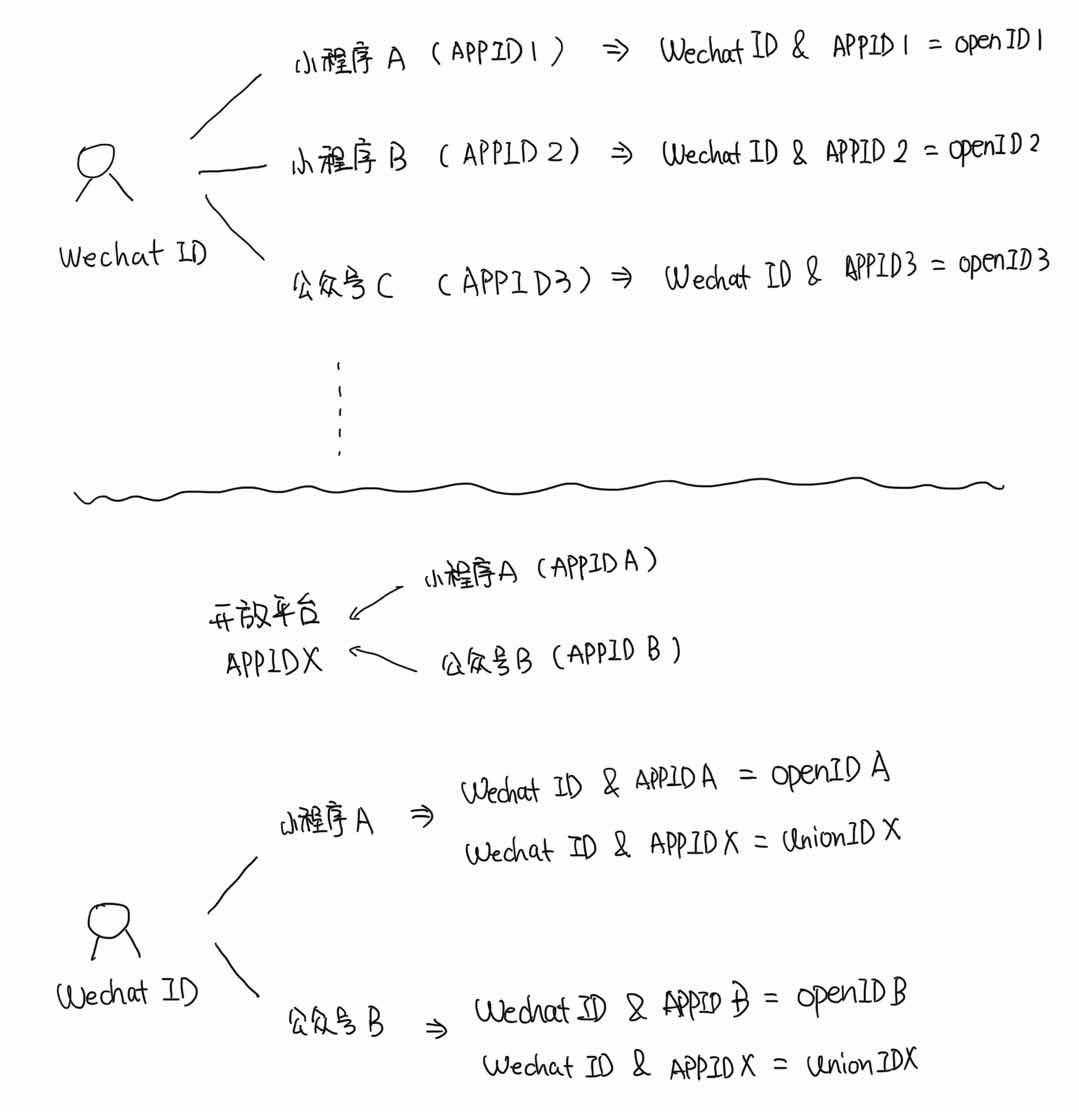 小程序A (APPID1) ⇒ Wechat ID & APPID1 = openID1
小程序B (APPID2) ⇒ Wechat ID & APPID2 = openID2
Wechat ID
公众号C (APPID3) ⇒ Wechat ID & APPID3 = openID3
小程序A (APPIDA)
开放平台
APPIDX
公众号B (APPID B)
小程序A ⇒ Wechat ID & APPIDA = openIDA
Wechat ID & APPIDX = UnionIDX
Wechat ID
公众号B ⇒ Wechat ID & APPID B = openIDB
Wechat ID & APPIDX = UnionIDX